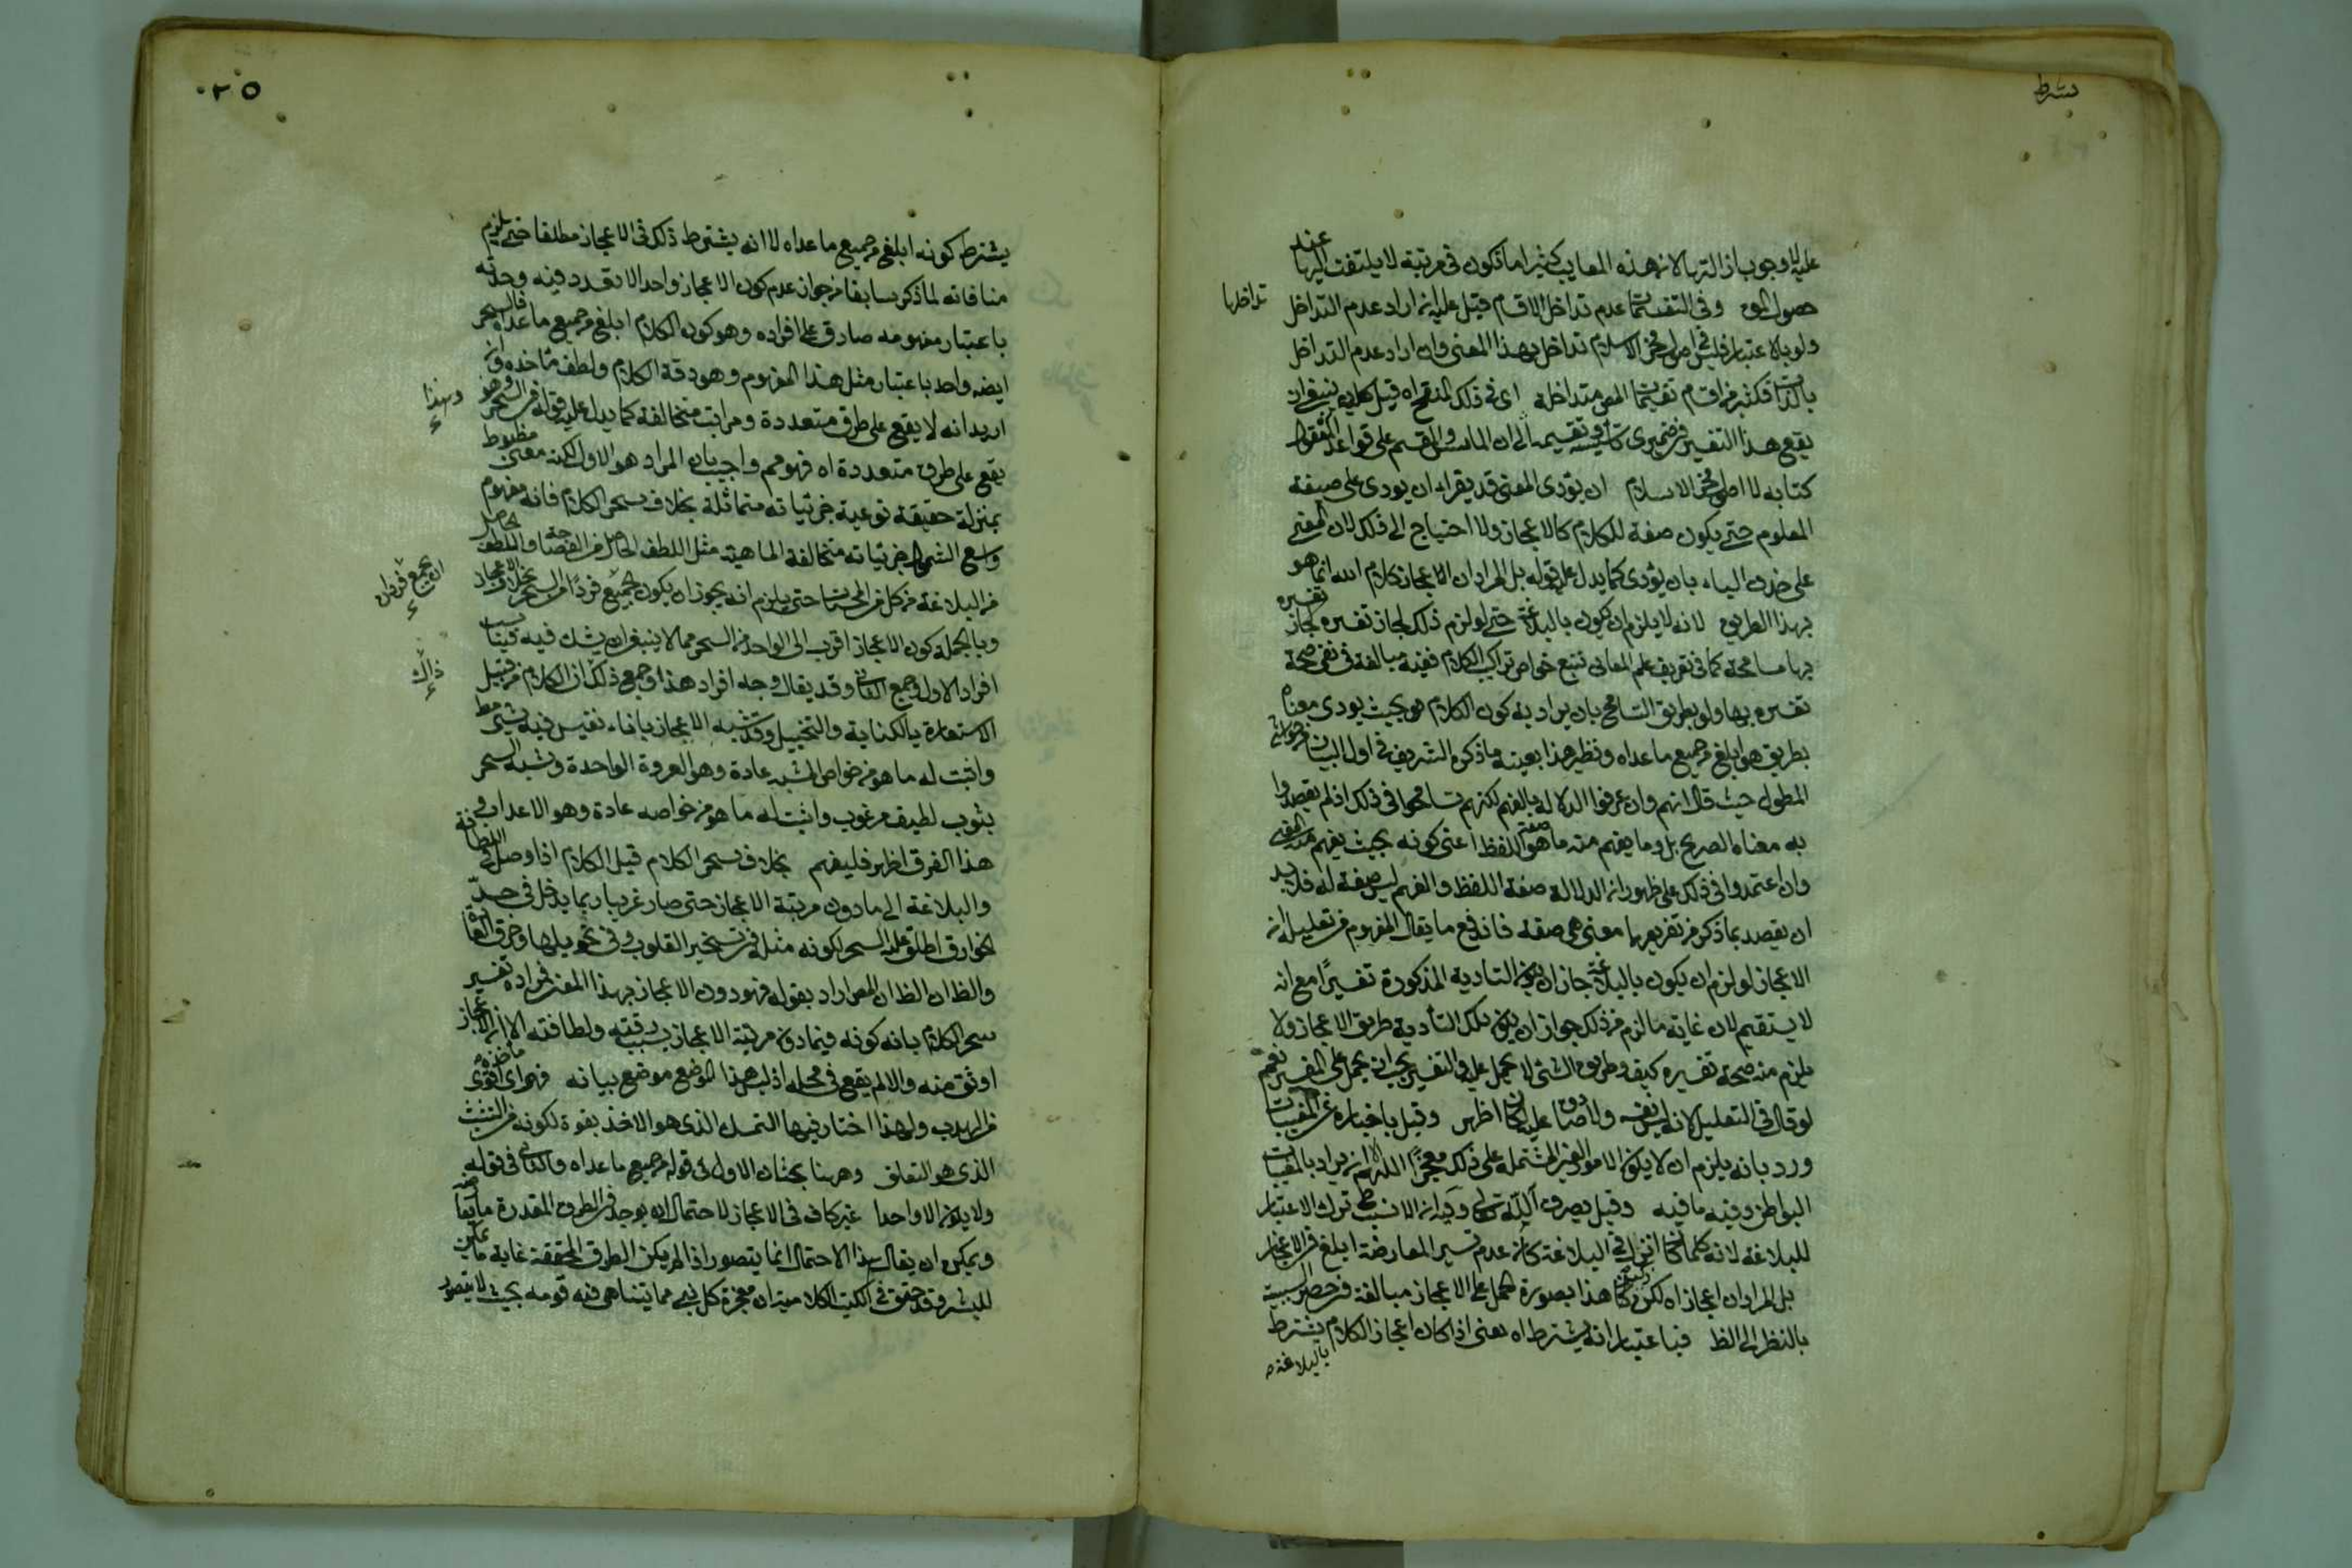 يشترط
عليه الاوجوب ازالتها لان هذه المعايب كثيرا ما تكون في مرتبة لا يلتفت اليها عند
حصول وفي التقسيمات عدم تداخل الاقسام قيل عليه انه اراد عدم التداخل
تداخلها
ولو بالاعتبار فليس في اصول فخر الاسلام تداخل بهذا المعنى وان اراد عدم التداخل
بالذات فكثير من اقسام تقسيمات المص متداخلة اى في ذلك المنقح اه قيل كان ينبغى ان
يقع هذا التفسير من ضميرى وتقسيمه الى ان المؤسس والمقسم على قواعد المعقول
كتابه لا اصول فخر الاسلام ان يؤدى المعنى قد يقراء ان يودى على صيغة
المعلوم حتى يكون صفة للكلام كالاعجاز ولا احتياج الى ذلك لان المعنى
على حذف الباء بان يؤدى كما يدل عليه قوله بل المراد ان الاعجاز كلام الله انما هو
بهذا الطريق لانه لا يلزم ان يكون بالبلاغة حتى لو لزم ذلك لجاز تفسيره
بها مسامحة كما في تعريف علم المعانى تتبع خواص تراكيب الكلام ففيه مبالغة في نفى صحة
تفسيره بها ولو بطريق التسامح بان يراد به كون الكلام بحيث يودى معناه
بطريق هو ابلغ من جميع ما عداه ونظير هذا بعينه ما ذكره الشريف في اول البيان من حواشى
المطول حيث قال انهم وان عرفوا الدلالة بالفهم لكنهم تسامحوا في ذلك اذ لم يقصدوا
به معناه الصريح بل وما يفهم منه ما هو صفة اللفظ اعنى كونه بحيث يفهم منه المعنى
وان اعتمدوا في ذلك على ظهور ان الدلالة صفة اللفظ والفهم ليس صفة له فلا بد
ان يقصد بما ذكر من تعريفها معنى هى صفة فاندفع ما يقال المفهوم من تعليله ان
الاعجاز لو لزم ان يكون بالبلاغة جاز ان يكون التادية المذكورة تفسيرًا مع انه
لا يستقيم لان غاية ما لزم من ذلك جواز ان يكون تلك التأدية طريق الاعجاز ولا
يلزم منه صحة تفسيره كيف وطريق الشئ لا يحمل عليه والتفسير يجب ان يحمل على المفسر نعم
لو قال في التعليل لانه ليس نفسه ولا صادق عليه لكان اظهر وقيل باخباره عن المغيبات
ورد بانه يلزم ان لا يكون الامور الغير المشتملة على ذلك معجزًا اللهم الا ان يراد بالمغيبات
البواطن وفيه ما فيه وقيل بصرف الله تعالى وكيد ان الانسب ترك الاعتبار
للبلاغة لانه كلما كان انزل في البلاغة كان عدم تيسر المعارضة ابلغ في الاعجاز
بل المراد ان اعجازاه لكن كان هذا بصورة الحمل على الاعجاز مبالغة في حصر السببية
بالنظر الى الظ فباعتبار انه يشترط اه يعنى اذا كان اعجاز الكلام يشترط
بالبلاغة
٢٥
يشترط كونه ابلغ من جميع ما عداه لا انه يشترط ذلك في الاعجاز مطلقا حتى يلزم
منافاته لما ذكر سابقا من جواز عدم كون الاعجاز واحدا لا تعدد فيه وحدته
باعتبار مفهومه صادق على افراده وهو كون الكلام ابلغ من جميع ما عداه فالسحر
ايضه واحد باعتبار مثل هذا المفهوم وهو دقة الكلام ولطف مأخذه وان
وبهذا
اريد انه لا يقع على طرق متعددة ومراتب متخالفة كما يدل عليه قوله في السحر وهو
يقع على طرق متعددة اه فهو مم واجيب بان المراد هو الاول لكنه معنى مضبوط
بمنزلة حقيقة نوعية جزئياته متماثلة بخلاف سحر الكلام فانه مفهوم
واسع الشمول جزئياته متخالفة الماهية مثل اللطف الحاصل من الفصاحة واللطف الحاصل
من البلاغة من كل من المحسنات حتى يلزم انه يجوز ان يكون الجميع فردًا من السحر بخلاف الاعجاز
وبالجملة كون الاعجاز اقرب الى الواحد من السحر مما لا ينبغى ان يشك فيه فيناسب
افراد الاول وجمع الثانى وقد يقال وجه افراد هذا وجمع ذلك ان الكلام من قبيل
ذاك
الاستعارة بالكناية والتخييل وقد شبه الاعجاز باناء نفيس فيه شئ
واثبت له ما هو من خواص المشبه عادة وهو العروة الواحدة وشبه السحر
بثوب لطيف مرغوب واثبت له ما هو من خواصه عادة وهو الاهداب وفى
هذا الفرق اظهر فليفهم بخلاف سحر الكلام قيل الكلام اذا وصل في اللطافة
والبلاغة الى ما دون مرتبة الاعجاز حتى صار غريبا ربما يدخل في حدّ
الخوارق اطلق عليه السحر لكونه مثله في تسخير القلوب وفى تحويلها وخرق العادة
والظ ان الظ ان المص اراد بقوله فهو دون الاعجاز بهذا المعنى افراده تفسير
سحر الكلام بانه كونه فيما دون مرتبة الاعجاز بسبب دقته ولطافته الا ان الاعجاز
اوثق منه والا لم يقع في محله اذ ليس هذا الموضع موضع بيانه فهو اى مأخذه اقوى
من الهدب ولهذا اختار فيها التمسك الذى هو الاخذ بقوة لكونه من التشبث
الذى هو التعلق وههنا بحثان الاول في قوله جميع ما عداه والثانى في قوله
ولا يكون الا واحدا غير كاف في الاعجاز لاحتمال ان يوجد في الطرق المقدرة ما
ويمكن ان يقال هذا الاحتمال انما يتصور اذا لم يكن الطرق المحققة غاية ما يمكن
للبشر وقد حقق في الكتب الكلامية ان معجزة كل نبى مما يتناهى فيه قومه بحيث لا يتصور